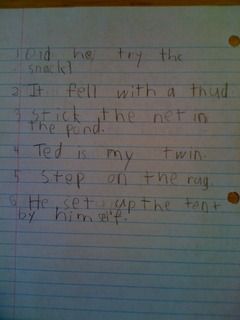 1 Did he try the
snack?
2 It fell with a thud.
3 stick the net in
the pond.
4 Ted is my twin.
5 Step on the rug.
6 He set up the tent
by himself.